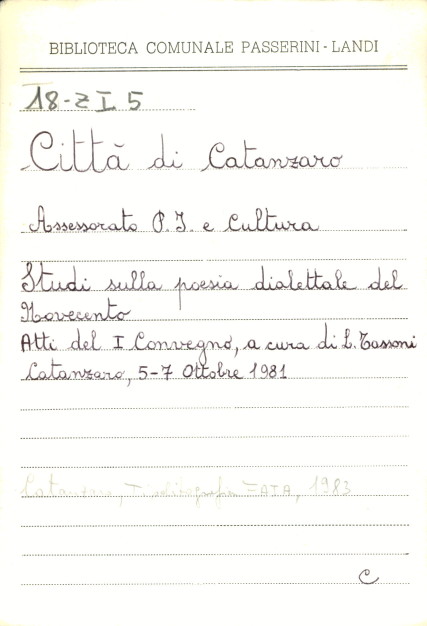 BIBLIOTECA COMUNALE PASSERINI - LANDI
18-Z I 5
Città di Catanzaro
Assessorato P. I. e Cultura
Studi sulla poesia dialettale del
Novecento
Atti del I Convegno, a cura di L. Tassoni
Catanzaro, 5-7 Ottobre 1981
Catanzaro, 1983
C